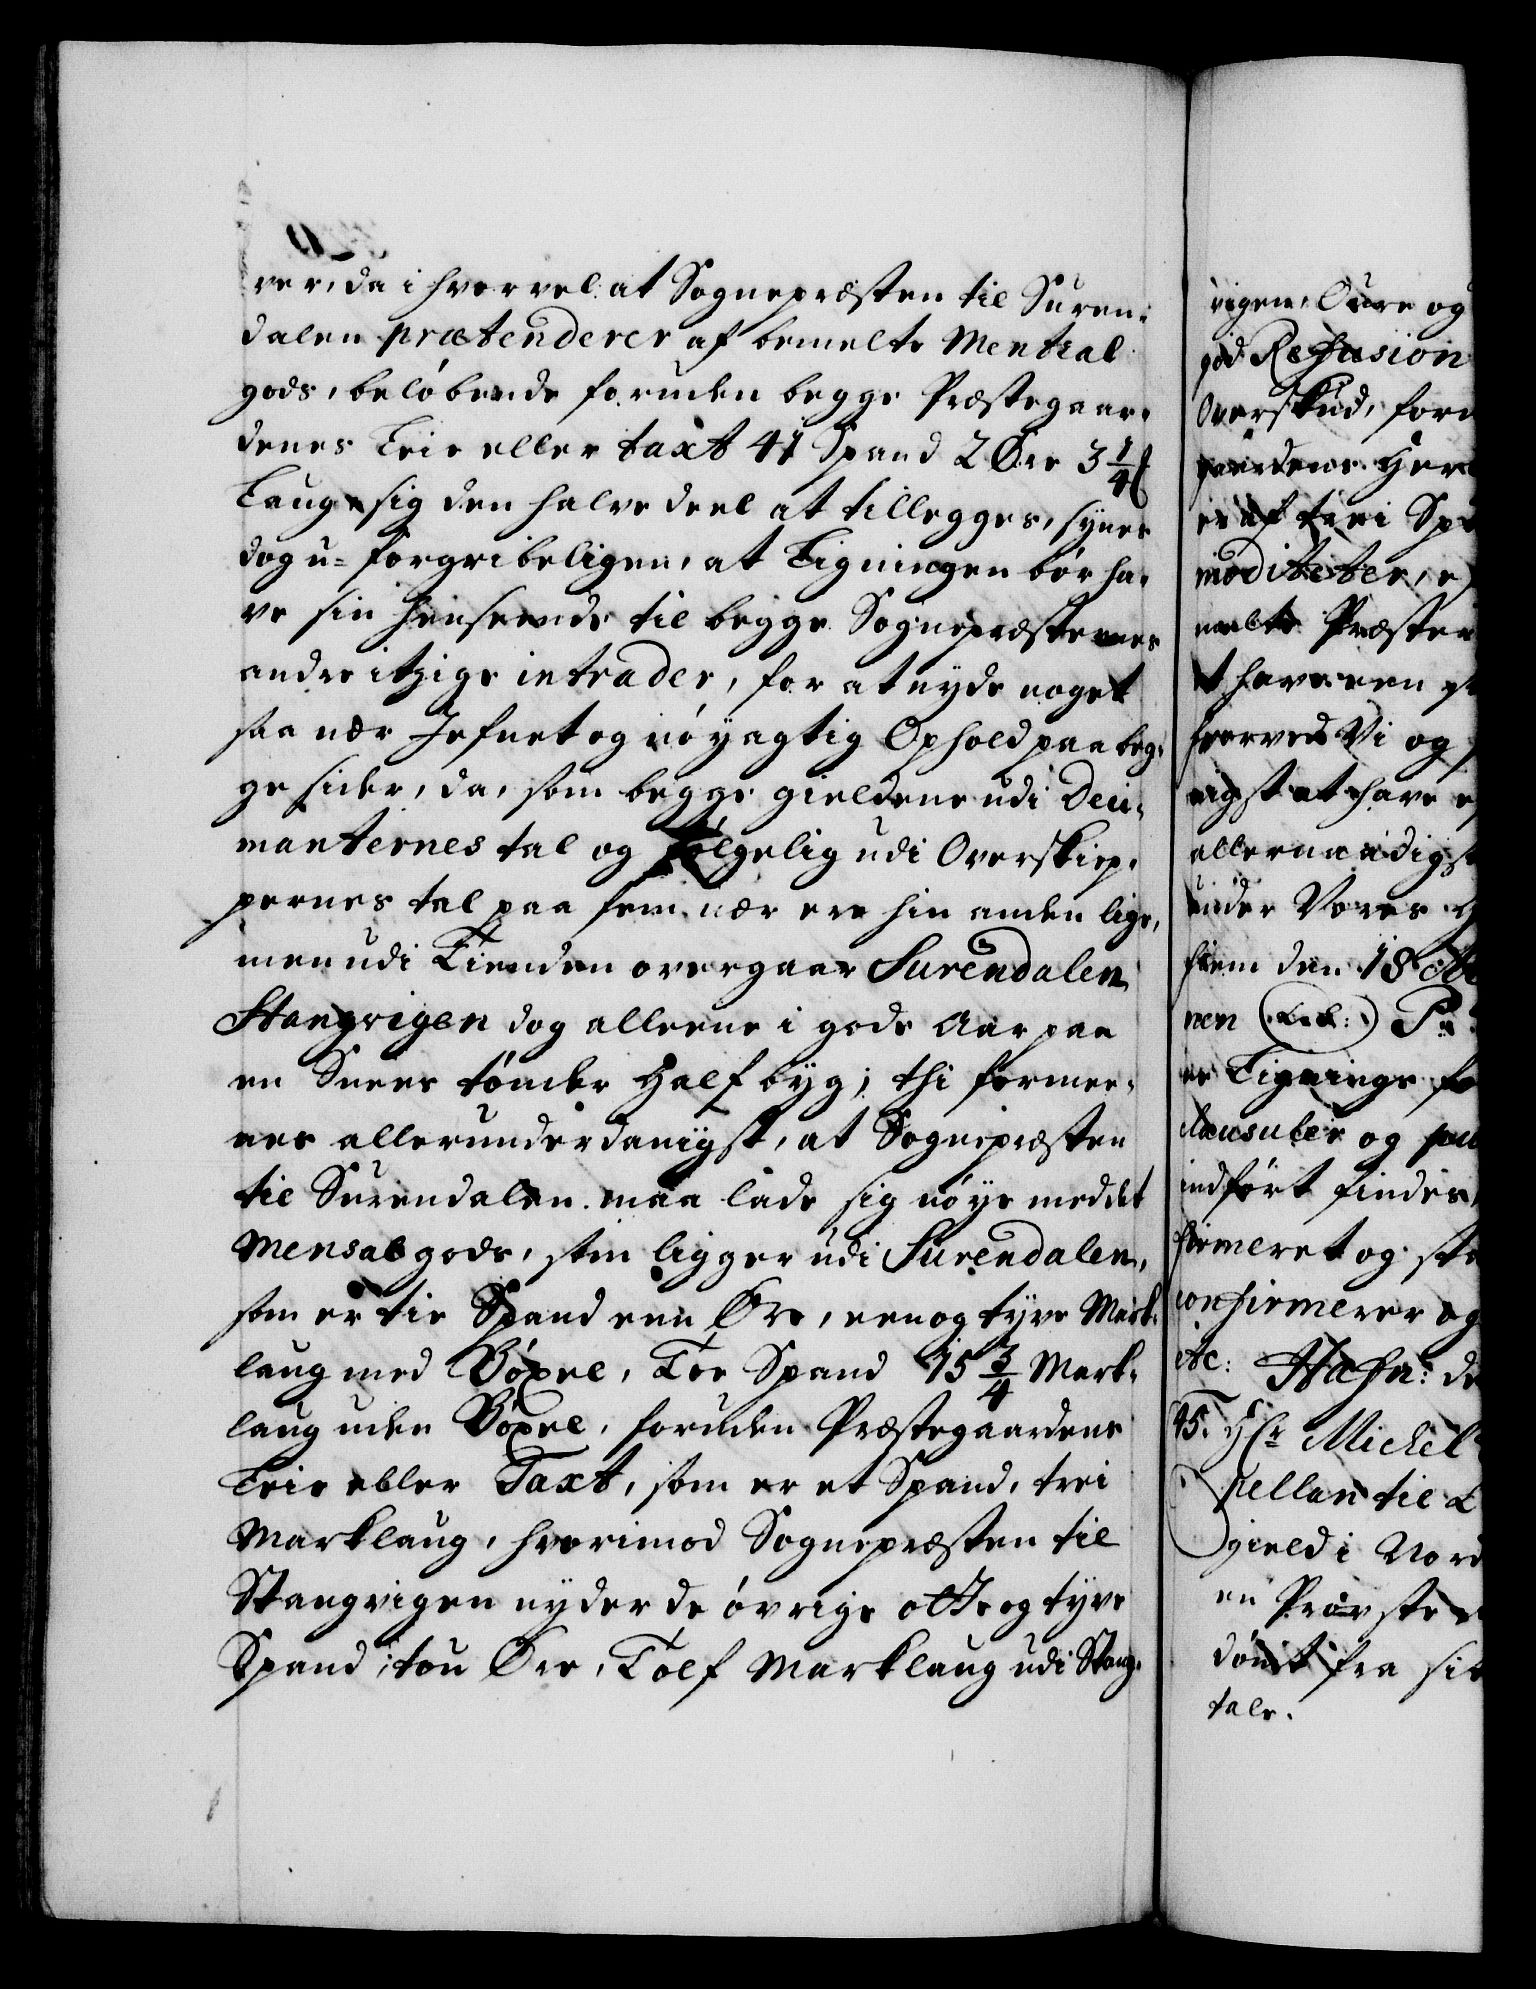 ver, da i hvorvel at Sognepræsten til Suren-
dalen prætenderer af bemelte Mensal
gods, beløbende foruden begge Præstegaar-
denes Leie eller taxt 41 Spand 2 Øre 3 1/4
Laug sig den halve deel at tillegges, synes
dog u-forgribeligen, at Ligningen bør ha-
ve sin henseende til begge Sognepræsternes
andre itzige intrader, for at nyde noget
saa nær Jefnet og nöyagtig Ophold paa beg-
ge sider, da, som begge gieldene udi Deci-
manternes tal og følgelig udi Overskiep-
pernes tal paa fem nær ere hin anden lige,
men udi Tienden overgaar Surendalen
Stangvigen dog alleene i gode Aar paa
en Snees tønder Half byg; thi formee-
nes allerunderdanigst, at Sognepræsten
til Surendalen maa lade sig nöye med det
Mensal gods, som ligger udi Surendalen,
som er tie Spand een Øre, een og tyve Mark-
laug med Bøxel, Toe Spand 15 3/4 Mark-
laug uden Bøxel, foruden Præstegaardens
Leie eller Taxt, som er et Spand, trei
Marklaug, hvorimod Sognepræsten til
Stangvigen nyder de øvrige otte og tyve
Spand, tou Øre, Tolf Marklaug udi Stang-
vigen, Oure og
god Refusion
Overskud, foru
gaardens Her
er af trei Sp
moditeter, e
melte Præster
t have een
hvorved Vi og
nigst at have
allernaadigst
under Vores
hiem den 18
nen P:
er Lignings
clausuler og
indført findes,
firmeret og st
confirmerer og
etc: Hafn: d
45. Hr Michel
pellan til
gield i Nord
en Provste
dømt fra si
tale.